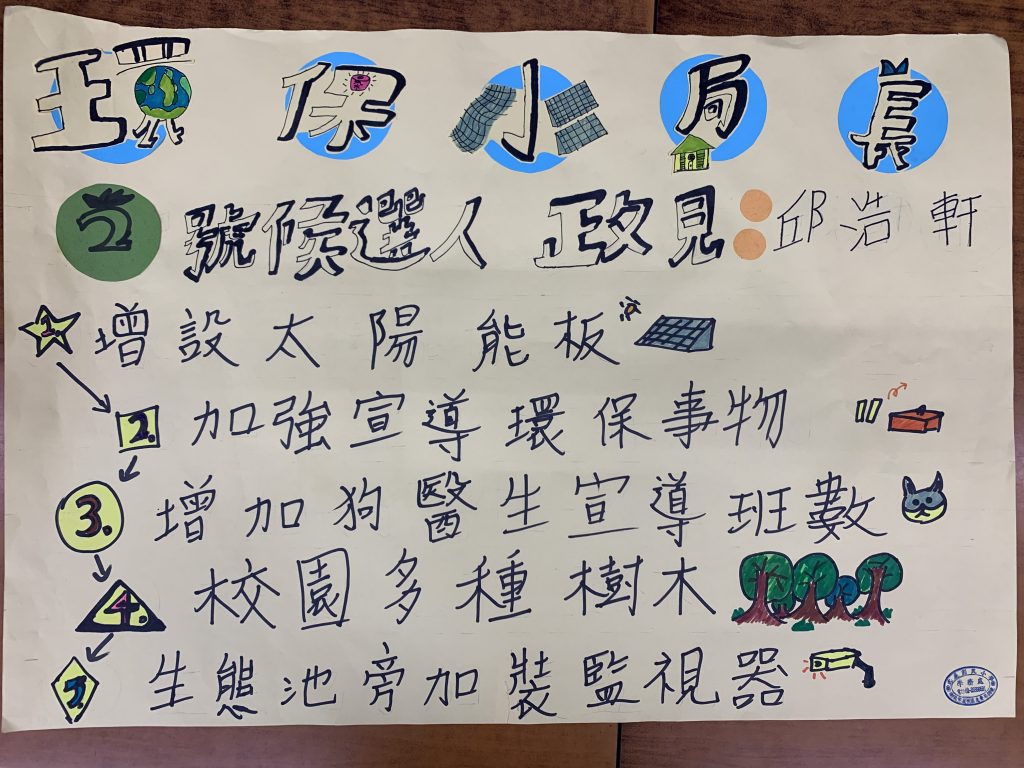 環保小局長
2號候選人 政見:邱浩軒
1. 增設太陽能板
2. 加強宣導環保事物
3. 增加狗醫生宣導班數
4. 校園多種樹木
5. 生態池旁加裝監視器